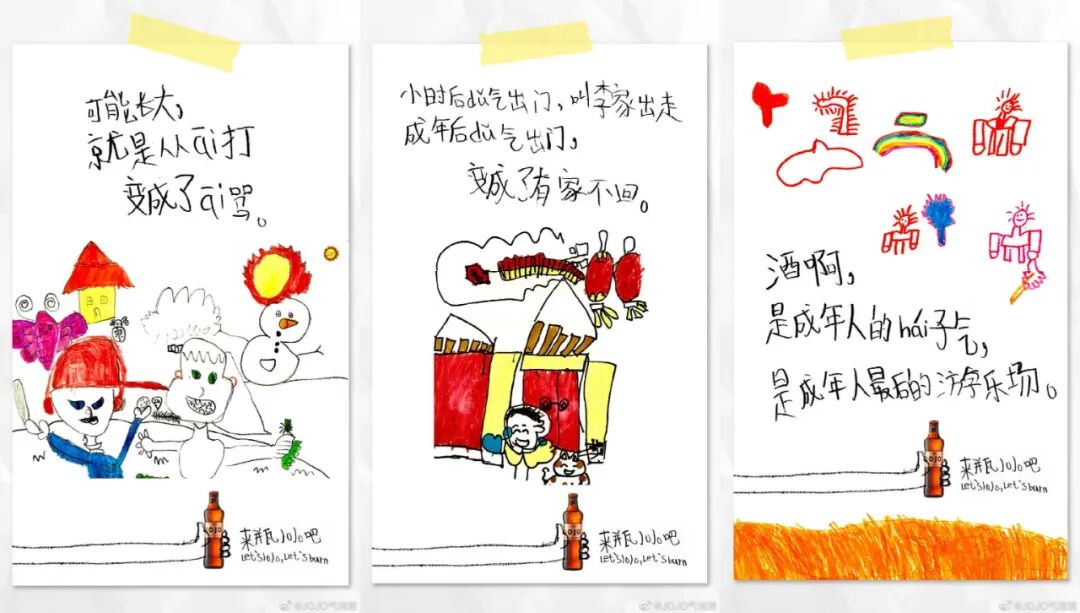 可能长大，
就是从āi打
变成了āi骂。
JOJO
来瓶JOJO吧
Let's JOJO, Let's burn
@JOJO气泡酒
小时后dǔ气出门，叫李家出走
成年后dǔ气出门，
变成了有家不回。
JOJO
来瓶JOJO吧
Let's JOJO, Let's burn
@JOJO气泡酒
酒啊，
是成年人的hái子气，
是成年人最后的游乐场。
JOJO
来瓶JOJO吧
Let's JOJO, Let's burn
@JOJO气泡酒